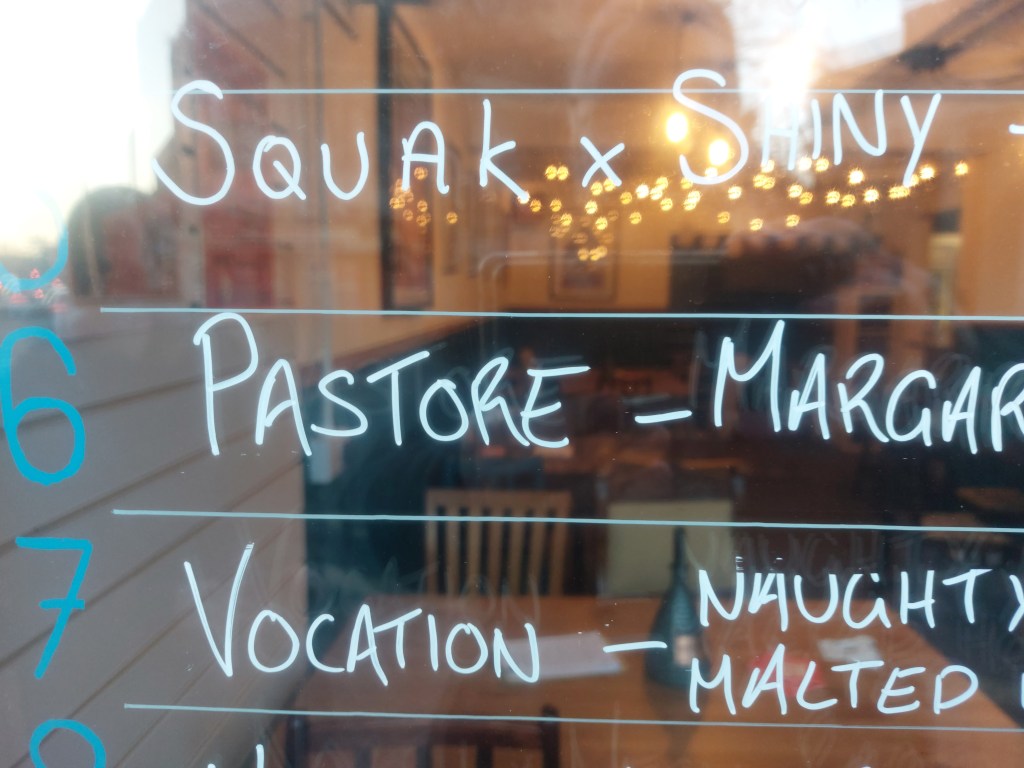 SQUAK x SHINY -
6 PASTORE - MARGAR
7 VOCATION - NAUGHTY
MALTED